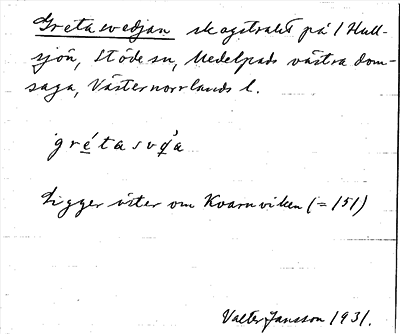 Gretasvedjan skogstrakt på 1 Hull-
sjön, Stöde sn, Medelpads västra dom-
saga, Västernorrlands l.
grétasvǿa
Ligger öster om Kvarnviken (= 151)
Valter Jansson 1931.